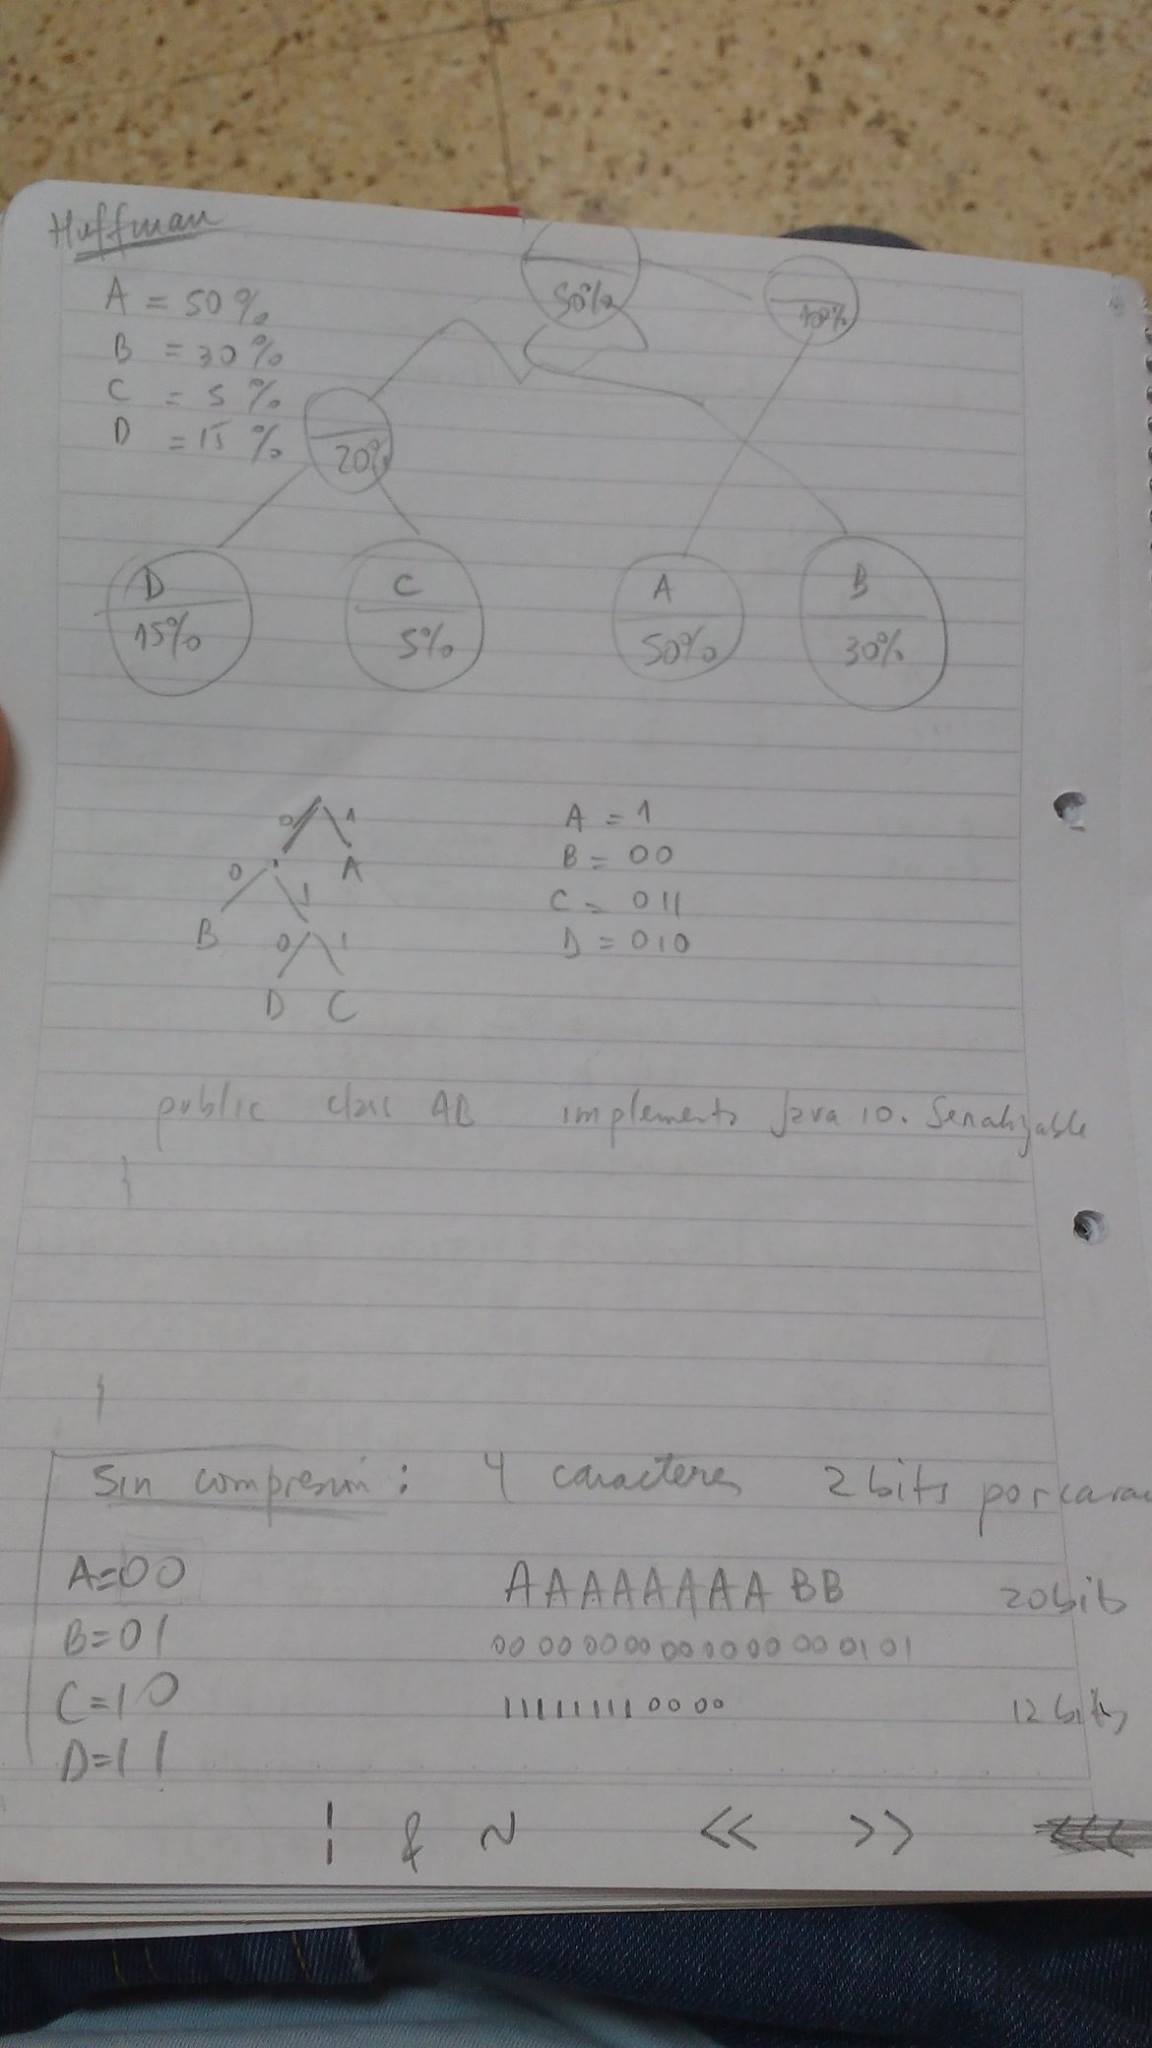 Huffman
A = 50%
B = 30%
C = 5%
D = 15%
50%
100%
20%
D
15%
C
5%
A
50%
B
30%
0 1
0 1 A
B 0 1
D C
A = 1
B = 00
C = 011
D = 010
public class AB implements Java io. Serializable
{
}
Sin compresión: 4 caracteres 2 bits por carac
A=00 AAAAAAAA BB 20 bits
B=01 00 00 00 00 00 00 00 00 01 01
C=10 11111111 00 00 12 bits
D=11
¦ & ~ << >>